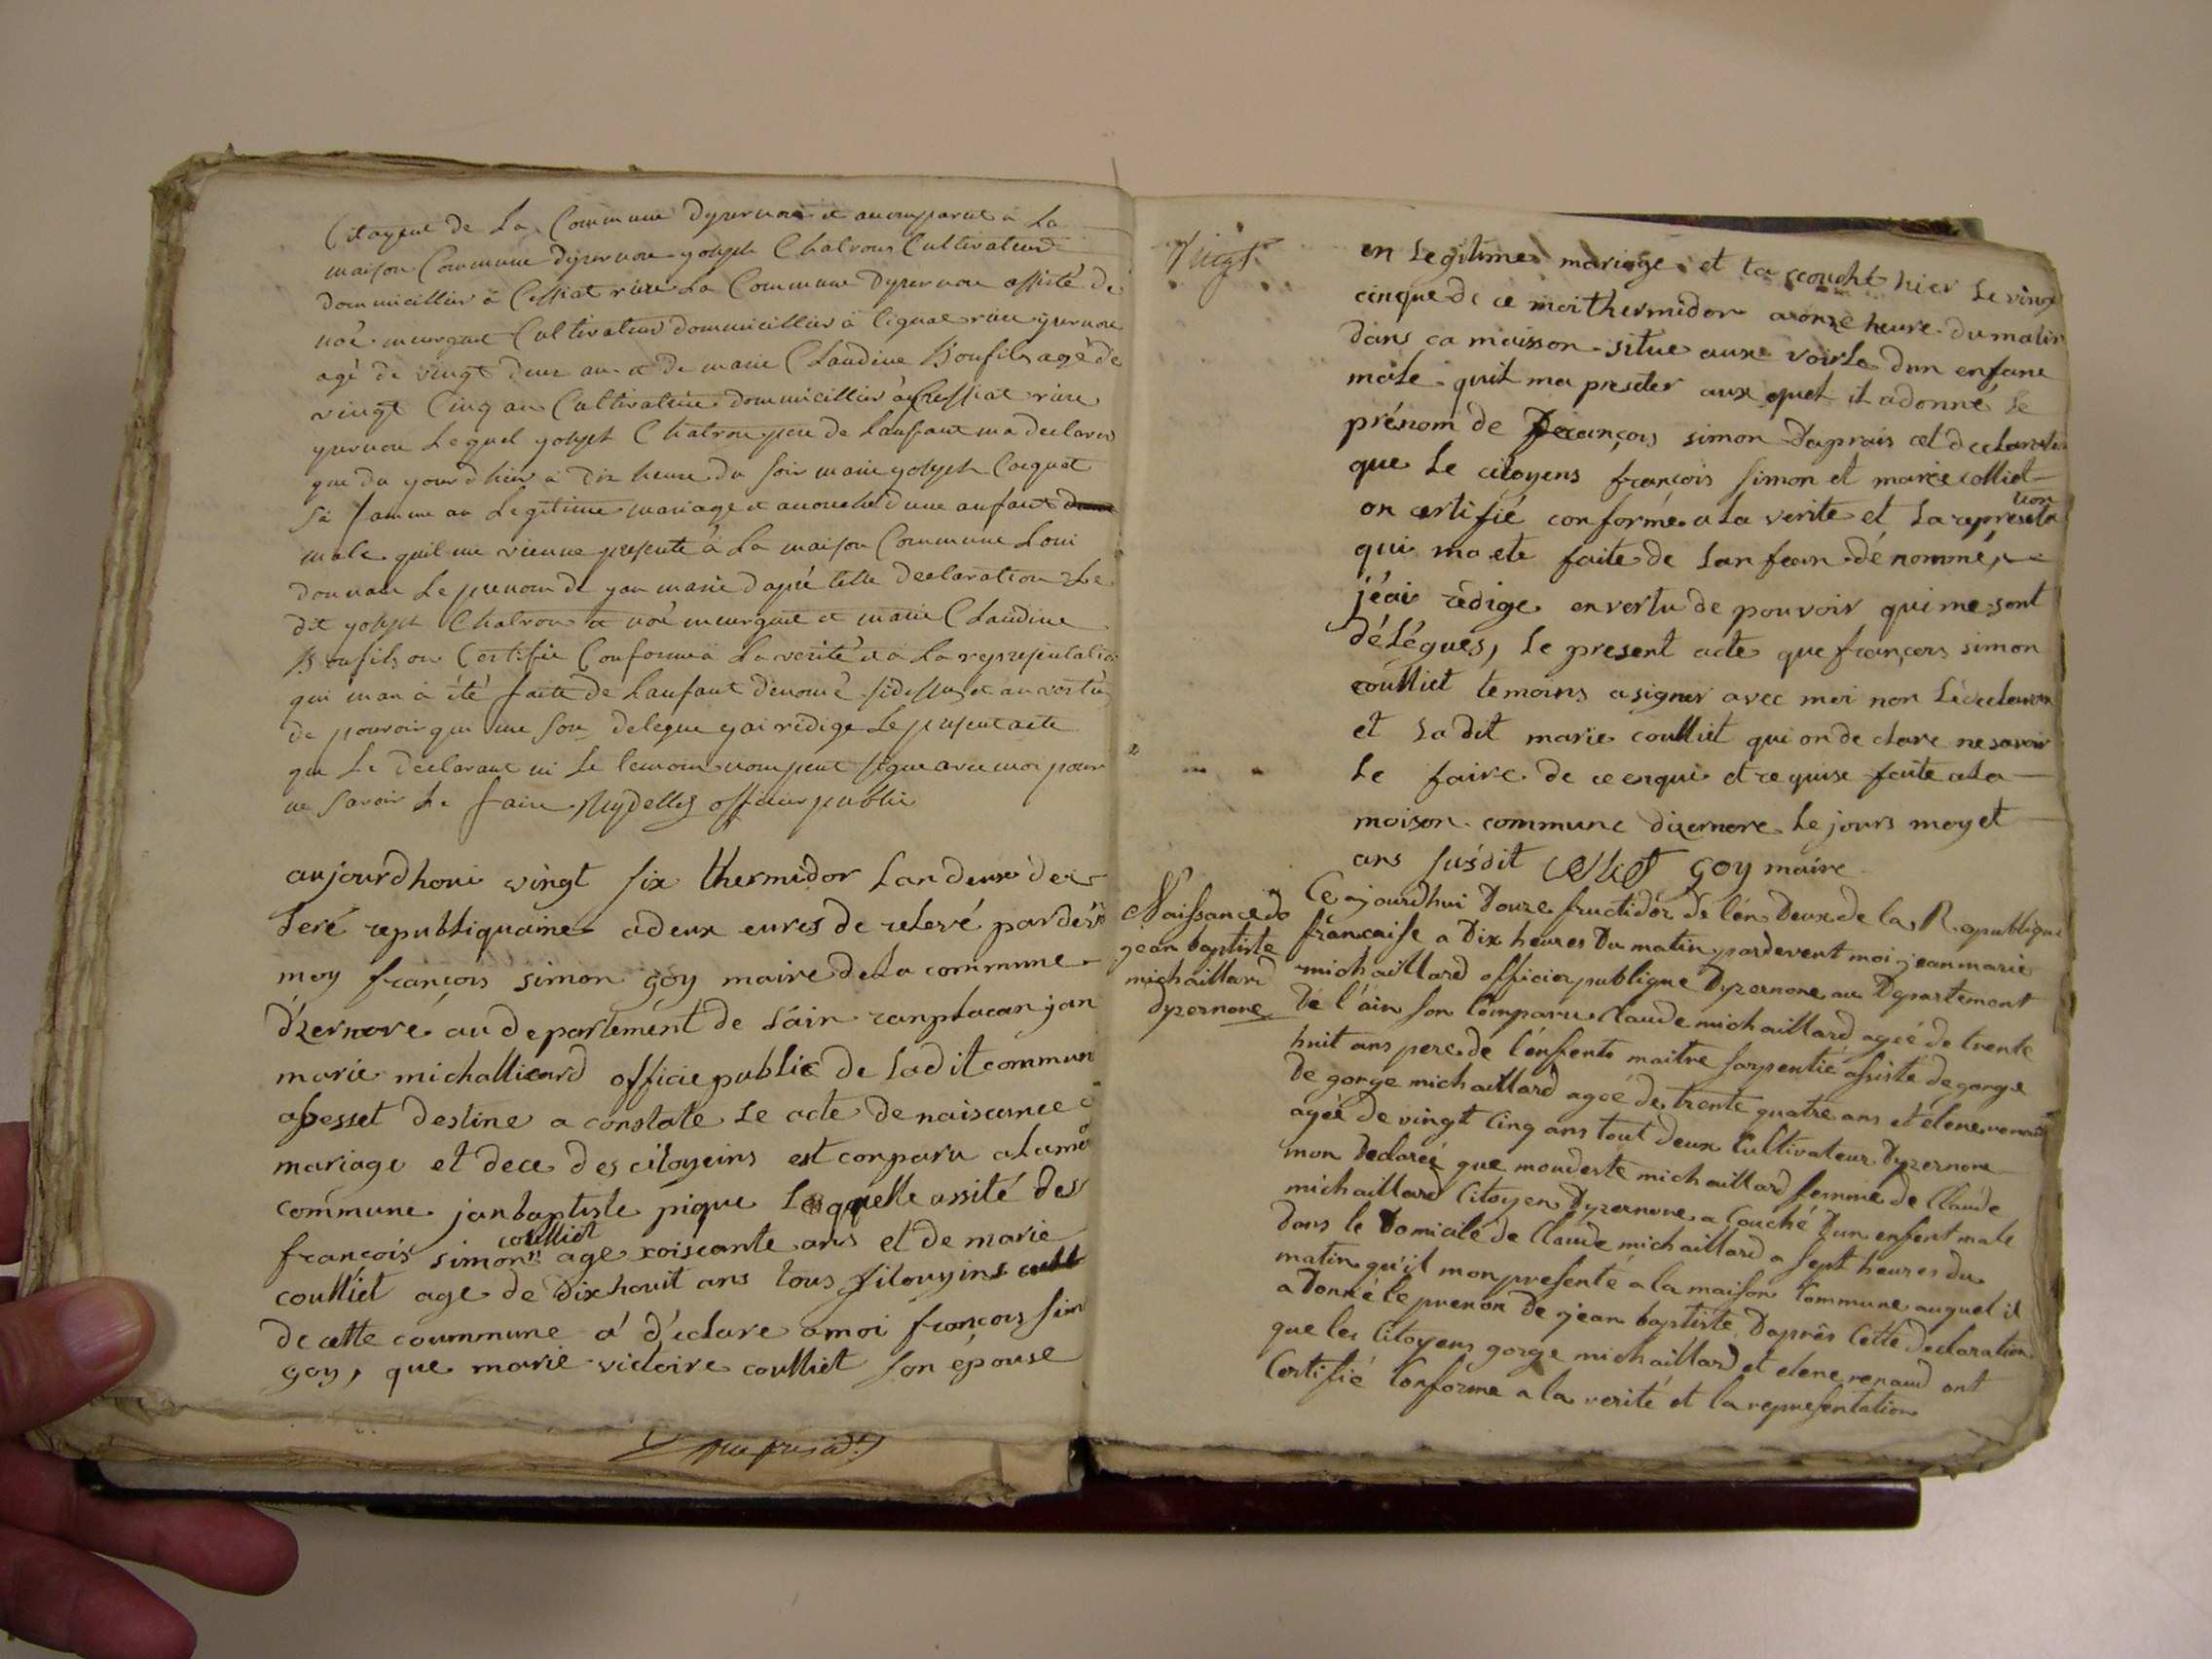 Citoyent de La Commune dyzernore et aucomparut a La
maison Commune dyzernore yoseph Chatrons Cultivateur
dommicillier à Cessiat riere La Commune dyzernore assisté de
noé meurgue Cultivateur dommicillier à lignat riere yzernore
agé de vingt deux an et de marie Claudine Bonfils agé de
vingt Cinq an Cultivateur dommicillier à Cessiat riere
yzernore Lequel yoseph Chatron pere de Lanfant ma declaré
que du yourdhier à dix heure du soir marie yoseph Cocquet
sa famme an Legitime mariage et acouché dune anfant
male quil me vienne presenté à La maison Commune Loui
donnan Le prenom de yan marie dapré cette declaration Le
dit yoseph Chatron et noé meurgue et marie Claudine
Bonfils on Certifié Conforme à La verité et à La representatio
qui man à été faite de Lanfant denomé sidessus et an vertu
de pouvoir qui me son delegue yai redige Le present acte
que Le declarant ni Le temoin nom peut signe avec moi pour
ne savoir Le faire Reydellet officier public
aujourdhoui vingt six thermidor Lan deux de
Leré republiquaine a deux eures de relevé pardev
moy françois simon goy maire de La commune
d'izernore au departement de L'ain ranplacan jan
marie michallieard officie public de Ladit commun
assesset destine a constate Le acte de naisance
mariage et dece des citoyeins est conparu a La mé
commune janbaptiste pique Laqquelle assité des
coulliet
françois simon age xoiscante ans et de marie
coulliet age de dix houit ans tous sitouyins
de cette coummune a d'eclare a moi françois sim
goy, que marie victoire coulliet son épouse
Vingt
en Legitime mariage et ta scouché hier Le vingt
cinque de ce moi thermidor a onze heure du matin
dans ca maisson situe aux voirle dun enfant
male quil ma presnter aux quel it a donné Le
prénom de françois simon daprais cet declarati
que Le citoyens françois simon et marie colliet
tion
on certifié conforme a La verite et La represeta
qui ma ete faite de Lanfean dé nommé,
jéai rédige en vertu de pouvoir qui me sont
déLégues, Le present acte que françois simon
coulliet temoins a signer avec moi non Lédeclaran
et La dit marie coulliet qui on declare ne savoir
Le faire de ce enqui et re quise faite a La
maison commune dizernore Le jours moy et
ans susdit Colliet goy maire
Naissance de
jean baptiste
michaillard
dyzernore
Ce ajourdhui douze fructidor de l'én deux de la Republique
francaise a dix heures du matin pardevent moi jean marie
michaillard officier publique dyzernore au Departement
de l'ain son Comparu Claude michaillard ageé de trente
huit ans pere de l'énfent maitre sarpentié assisté de gorge
de gorge michaillard ageé de trente quatre ans et élene renaud
ageé de vingt Cinq ans tout deux Cultivateur dyzernore
mon declareé que moudeste michaillard femme de Claude
michaillard Citoyen dyzernore a Couché dun enfent male
dans le domicile de Claude michaillard a sept heures du
matin qu'il mon presenté a la maison Commune auquel il
a donné le prenon de jean baptiste daprês Cette declaration
que les Citoyens gorge michaillard et elene renaud ont
Certifié Conforme a la verité et la representation